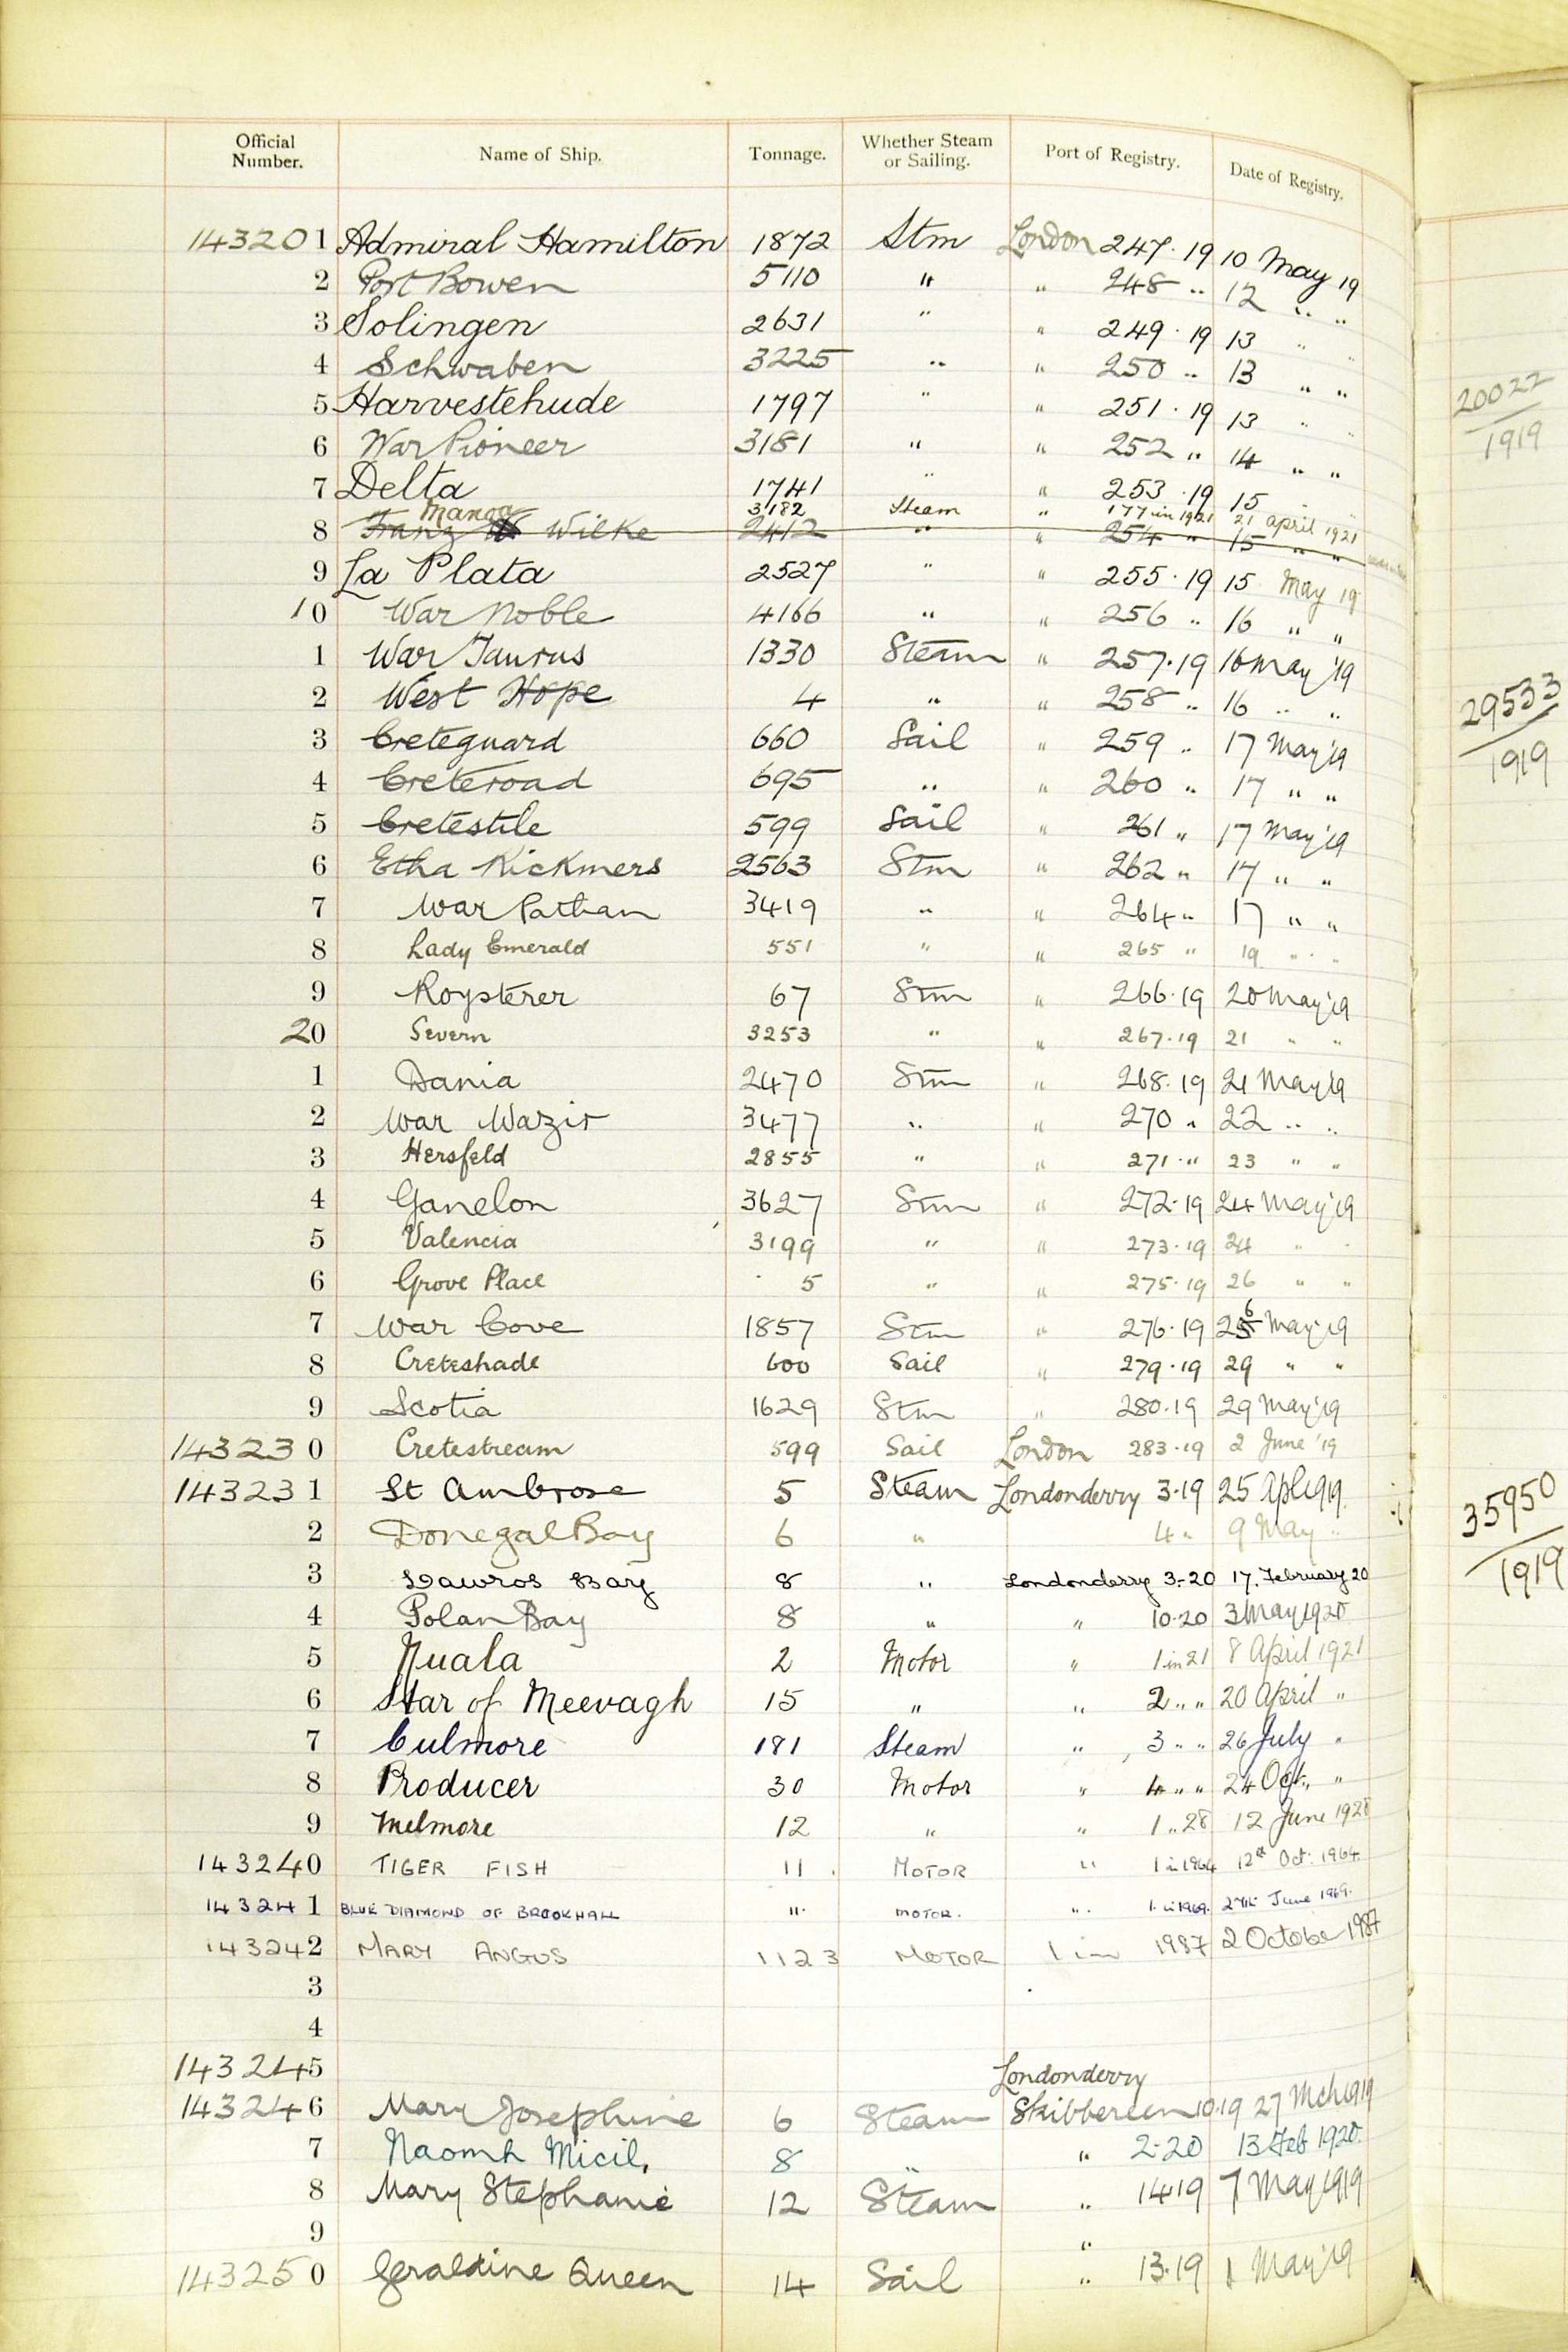 Official Number. Name of Ship. Tonnage. Whether Steam or Sailing. Port of Registry. Date of Registry.
143201 Admiral Hamilton 1872 Stm London 247.19 10 May 19
2 Port Bowen 5110 " " 248 " 12 " "
3 Solingen 2631 " " 249.19 13 " "
4 Schwaben 3225 " " 250 " 13 " "
5 Harvestehude 1797 " " 251.19 13 " "
6 War Pioneer 3181 " " 252 " 14 " "
7 Delta 1741 " " 253.19 15 " "
Manoa 3182 Steam " 177 in 1921 21 April 1921
8 Franz W Wilke 2412 " " 254 " 15 " "
9 La Plata 2527 " " 255.19 15 May 19
10 War Noble 4166 " " 256 " 16 " "
1 War Taurus 1330 Steam " 257.19 16 May '19
2 West Hope 4 " " 258 " 16 " "
3 Creteguard 660 Sail " 259 " 17 May '19
4 Creteroad 695 " " 260 " 17 " "
5 Cretestile 599 Sail " 261 " 17 May '19
6 Etha Rickmers 2563 Stm " 262 " 17 " "
7 War Pathan 3419 " " 264 " 17 " "
8 Lady Emerald 551 " " 265 " 19 " "
9 Roysterer 67 Stm " 266.19 20 May '19
20 Severn 3253 " " 267.19 21 " "
1 Dania 2470 Stm " 268.19 21 May '19
2 War Wazir 3477 " " 270 " 22 " "
3 Hersfeld 2855 " " 271 " 23 " "
4 Ganelon 3627 Stm " 272.19 24 May '19
5 Valencia 3199 " " 273.19 24 " "
6 Grove Place 5 " " 275.19 26 " "
7 War Cove 1857 Stm " 276.19 26 May '19
8 Creteshade 600 Sail " 279.19 29 " "
9 Scotia 1629 Stm " 280.19 29 May '19
143230 Cretestream 599 Sail London 283.19 2 June '19
143231 St Ambrose 5 Steam Londonderry 3.19 25 Apl 1919.
2 Donegal Bay 6 " 4 " 9 May "
3 Dawros Bay 8 " Londonderry 3-20 17. February 20
4 Polan Bay 8 " " 10.20 3 May 1920
5 Nuala 2 Motor " 1 in 21 8 April 1921
6 Star of Meevagh 15 " " 2 " " 20 April "
7 Culmore 181 Steam " 3 " " 26 July "
8 Producer 30 Motor " 4 " " 24 Oct. "
9 Melmore 12 " " 1 " 28 12 June 1928
143240 TIGER FISH 11 MOTOR " 1 in 1964 12th Oct. 1964
143241 BLUE DIAMOND OF BROOKHALL 11. MOTOR. " 1 in 1969. 27th June 1969.
143242 MARY ANGUS 1123 MOTOR 1 in 1987 2 October 1987
3
4
143245
Londonderry
143246 Mary Josephine 6 Steam Skibbereen 10.19 27 Mch 1919
7 Naomh Micil. 8 " " 2-20 13 Feb 1920.
8 Mary Stephanie 12 Steam " 14 19 7 May 1919
9 "
143250 Geraldine Queen 14 Sail " 13.19 1 May '19
20022
1919
29533
1919
35950
1919